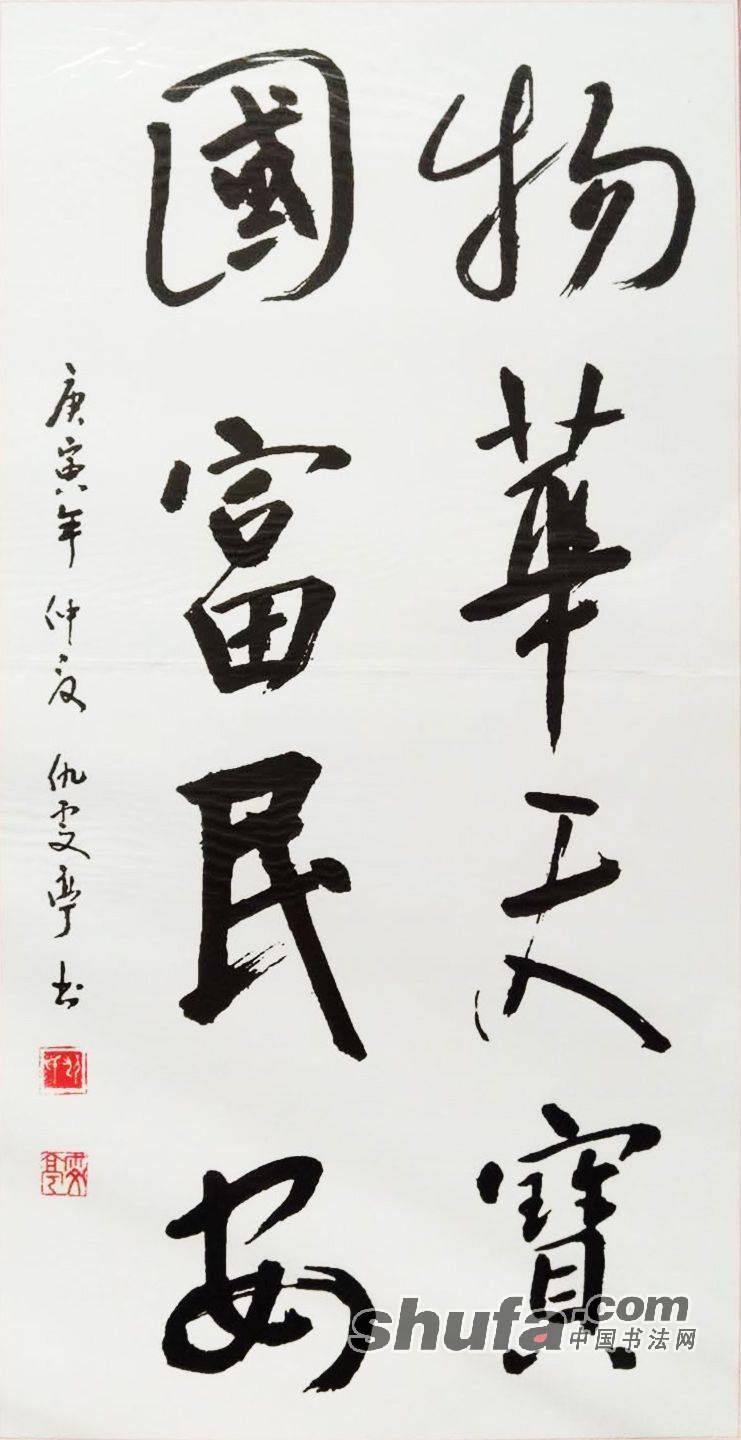 物華天寶
國富民安
庚寅年仲夏仇雯亭书
雯亭
shufa.com
中国书法网